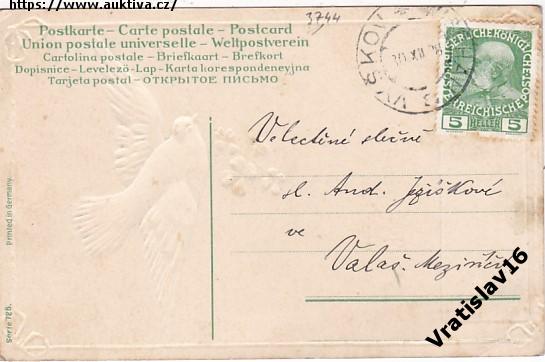 https://www.auktiva.cz/
3744
Postkarte – Carte postale – Postcard
Union postale universelle – Weltpostverein
Cartolina postale – Briefkaart – Brefkort
Dopisnice – Levelező-Lap – Karta korespondencyjna
Tarjeta postal – ОТКРЫТОЕ ПИСЬМО
VYŠKOV
5 HELLER 5
Velectěné slečně
sl. And. Ježíškové
ve
Valaš. Meziříčí
Printed in Germany.
Serie 728.
Vratislav16